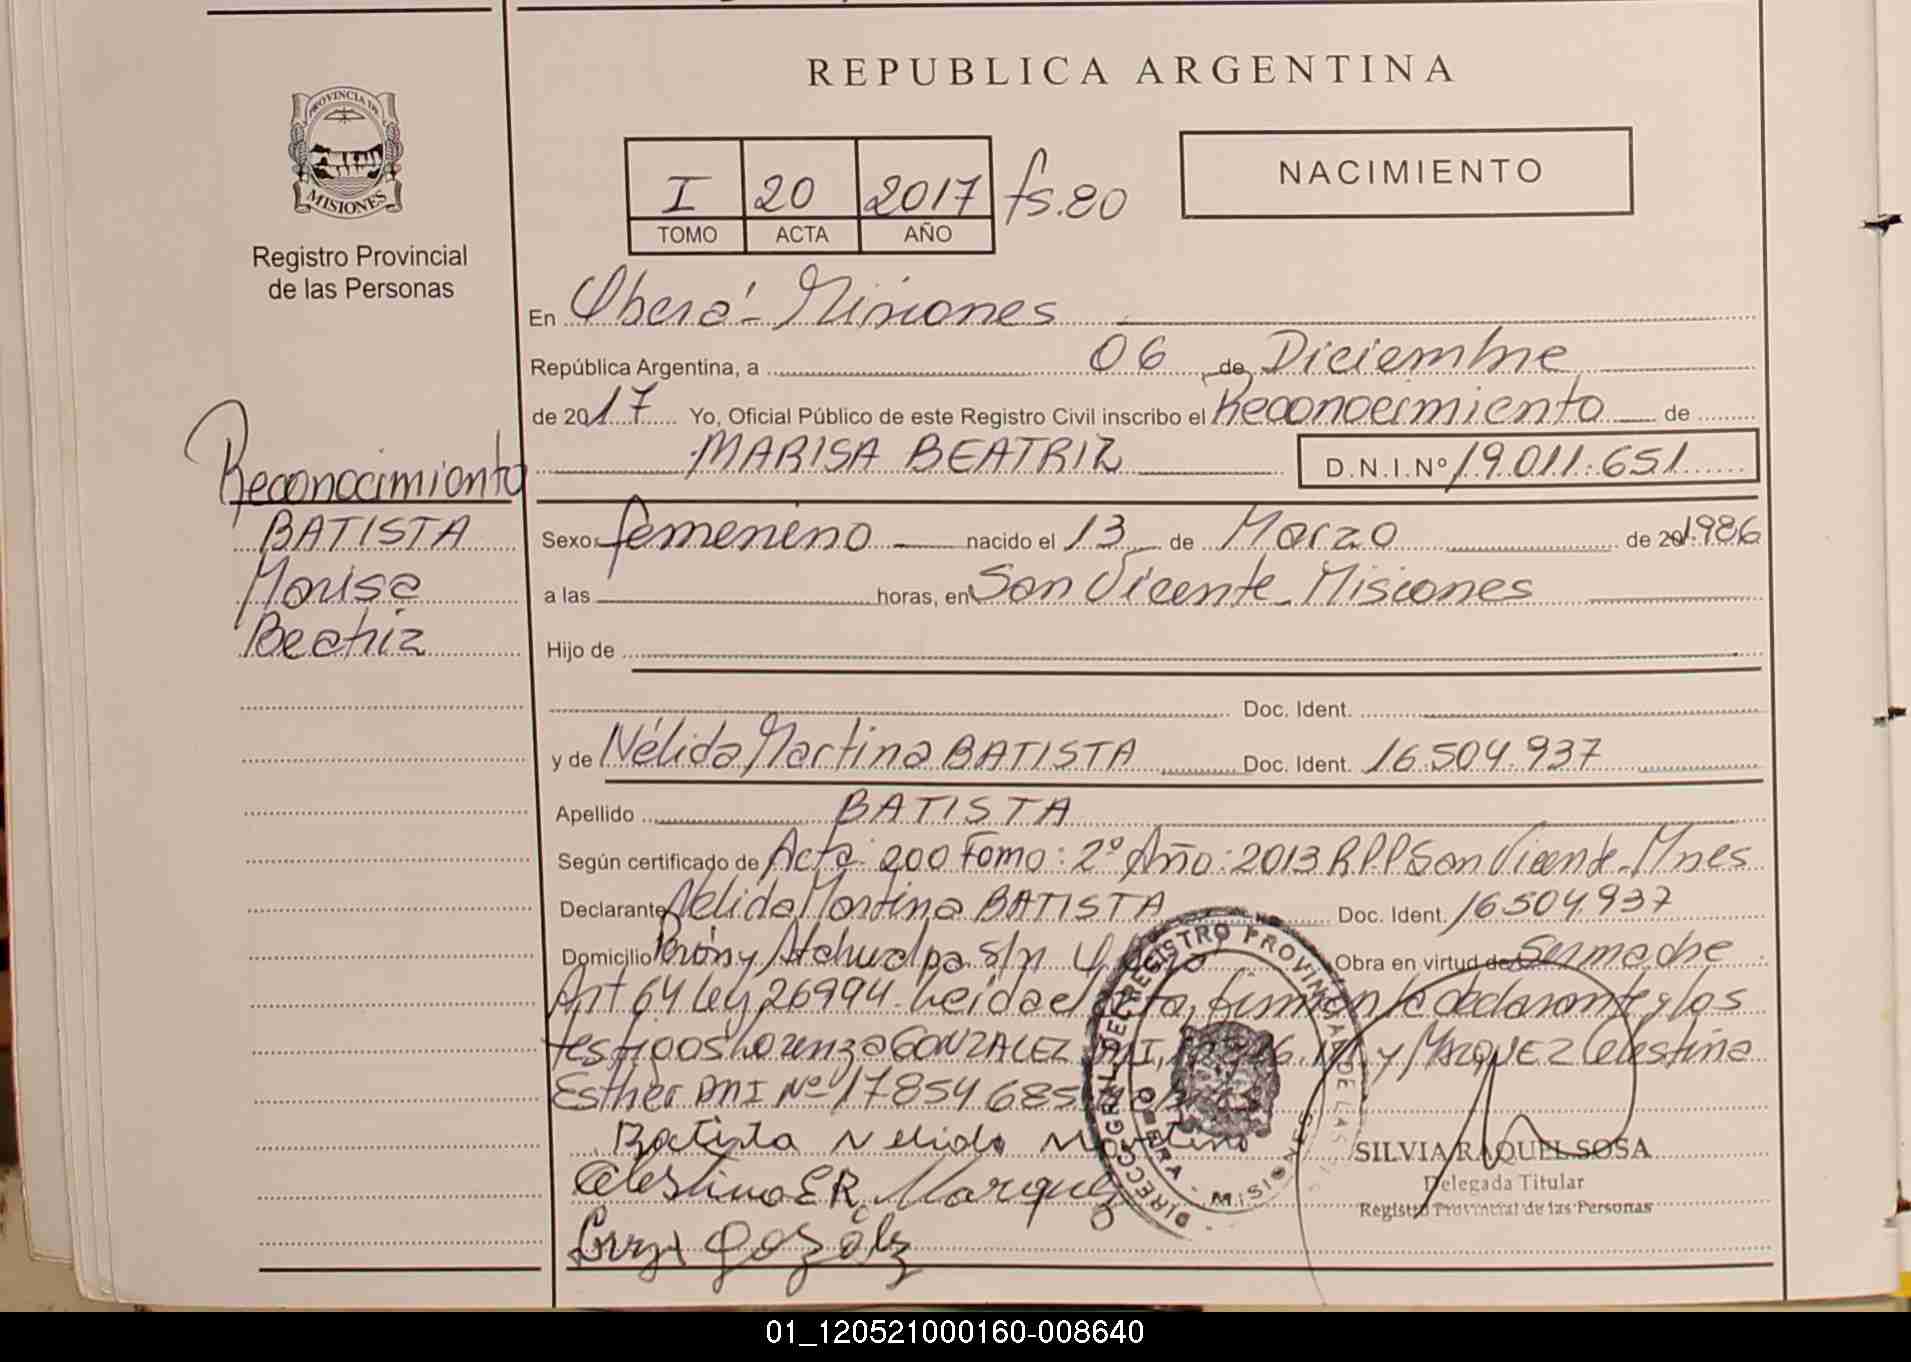 REPUBLICA ARGENTINA
PROVINCIA DE
MISIONES
Registro Provincial
de las Personas
NACIMIENTO
I 20 2017 fs.80
TOMO ACTA AÑO
En Oberá - Misiones
República Argentina, a 06 de Diciembre
de 2017 Yo, Oficial Público de este Registro Civil inscribo el Reconocimiento de
MARISA BEATRIZ D.N.I.Nº 19.011.651
Reconocimiento
BATISTA
Marisa
Beatriz
Sexo femenino nacido el 13 de Marzo de 20 1986
a las horas, en San Vicente - Misiones
Hijo de
Doc. Ident.
y de Nélida Martina BATISTA Doc. Ident. 16.504.937
Apellido BATISTA
Según certificado de Acta: 200 Tomo: 2º Año: 2013 R.P.P San Vicente - Mnes
Declarante Nélida Martina BATISTA Doc. Ident. 16504937
Domicilio Perón y Atahualpa s/n Obra en virtud de Ser madre
Art 64 Ley 26994. Leida el acta, firman la declarante y los
testigos Lorenza GONZALEZ DNI y MARQUEZ Celestina
Esther DNI Nº 17854685
Batista Nelida Martina
Celestina E R. Marquez
DIRECC. GRAL. DEL REGISTRO PROVINCIAL DE LAS
OBERA - MISIONES
SILVIA RAQUEL SOSA
Delegada Titular
Registro Provincial de las Personas
01_120521000160-008640